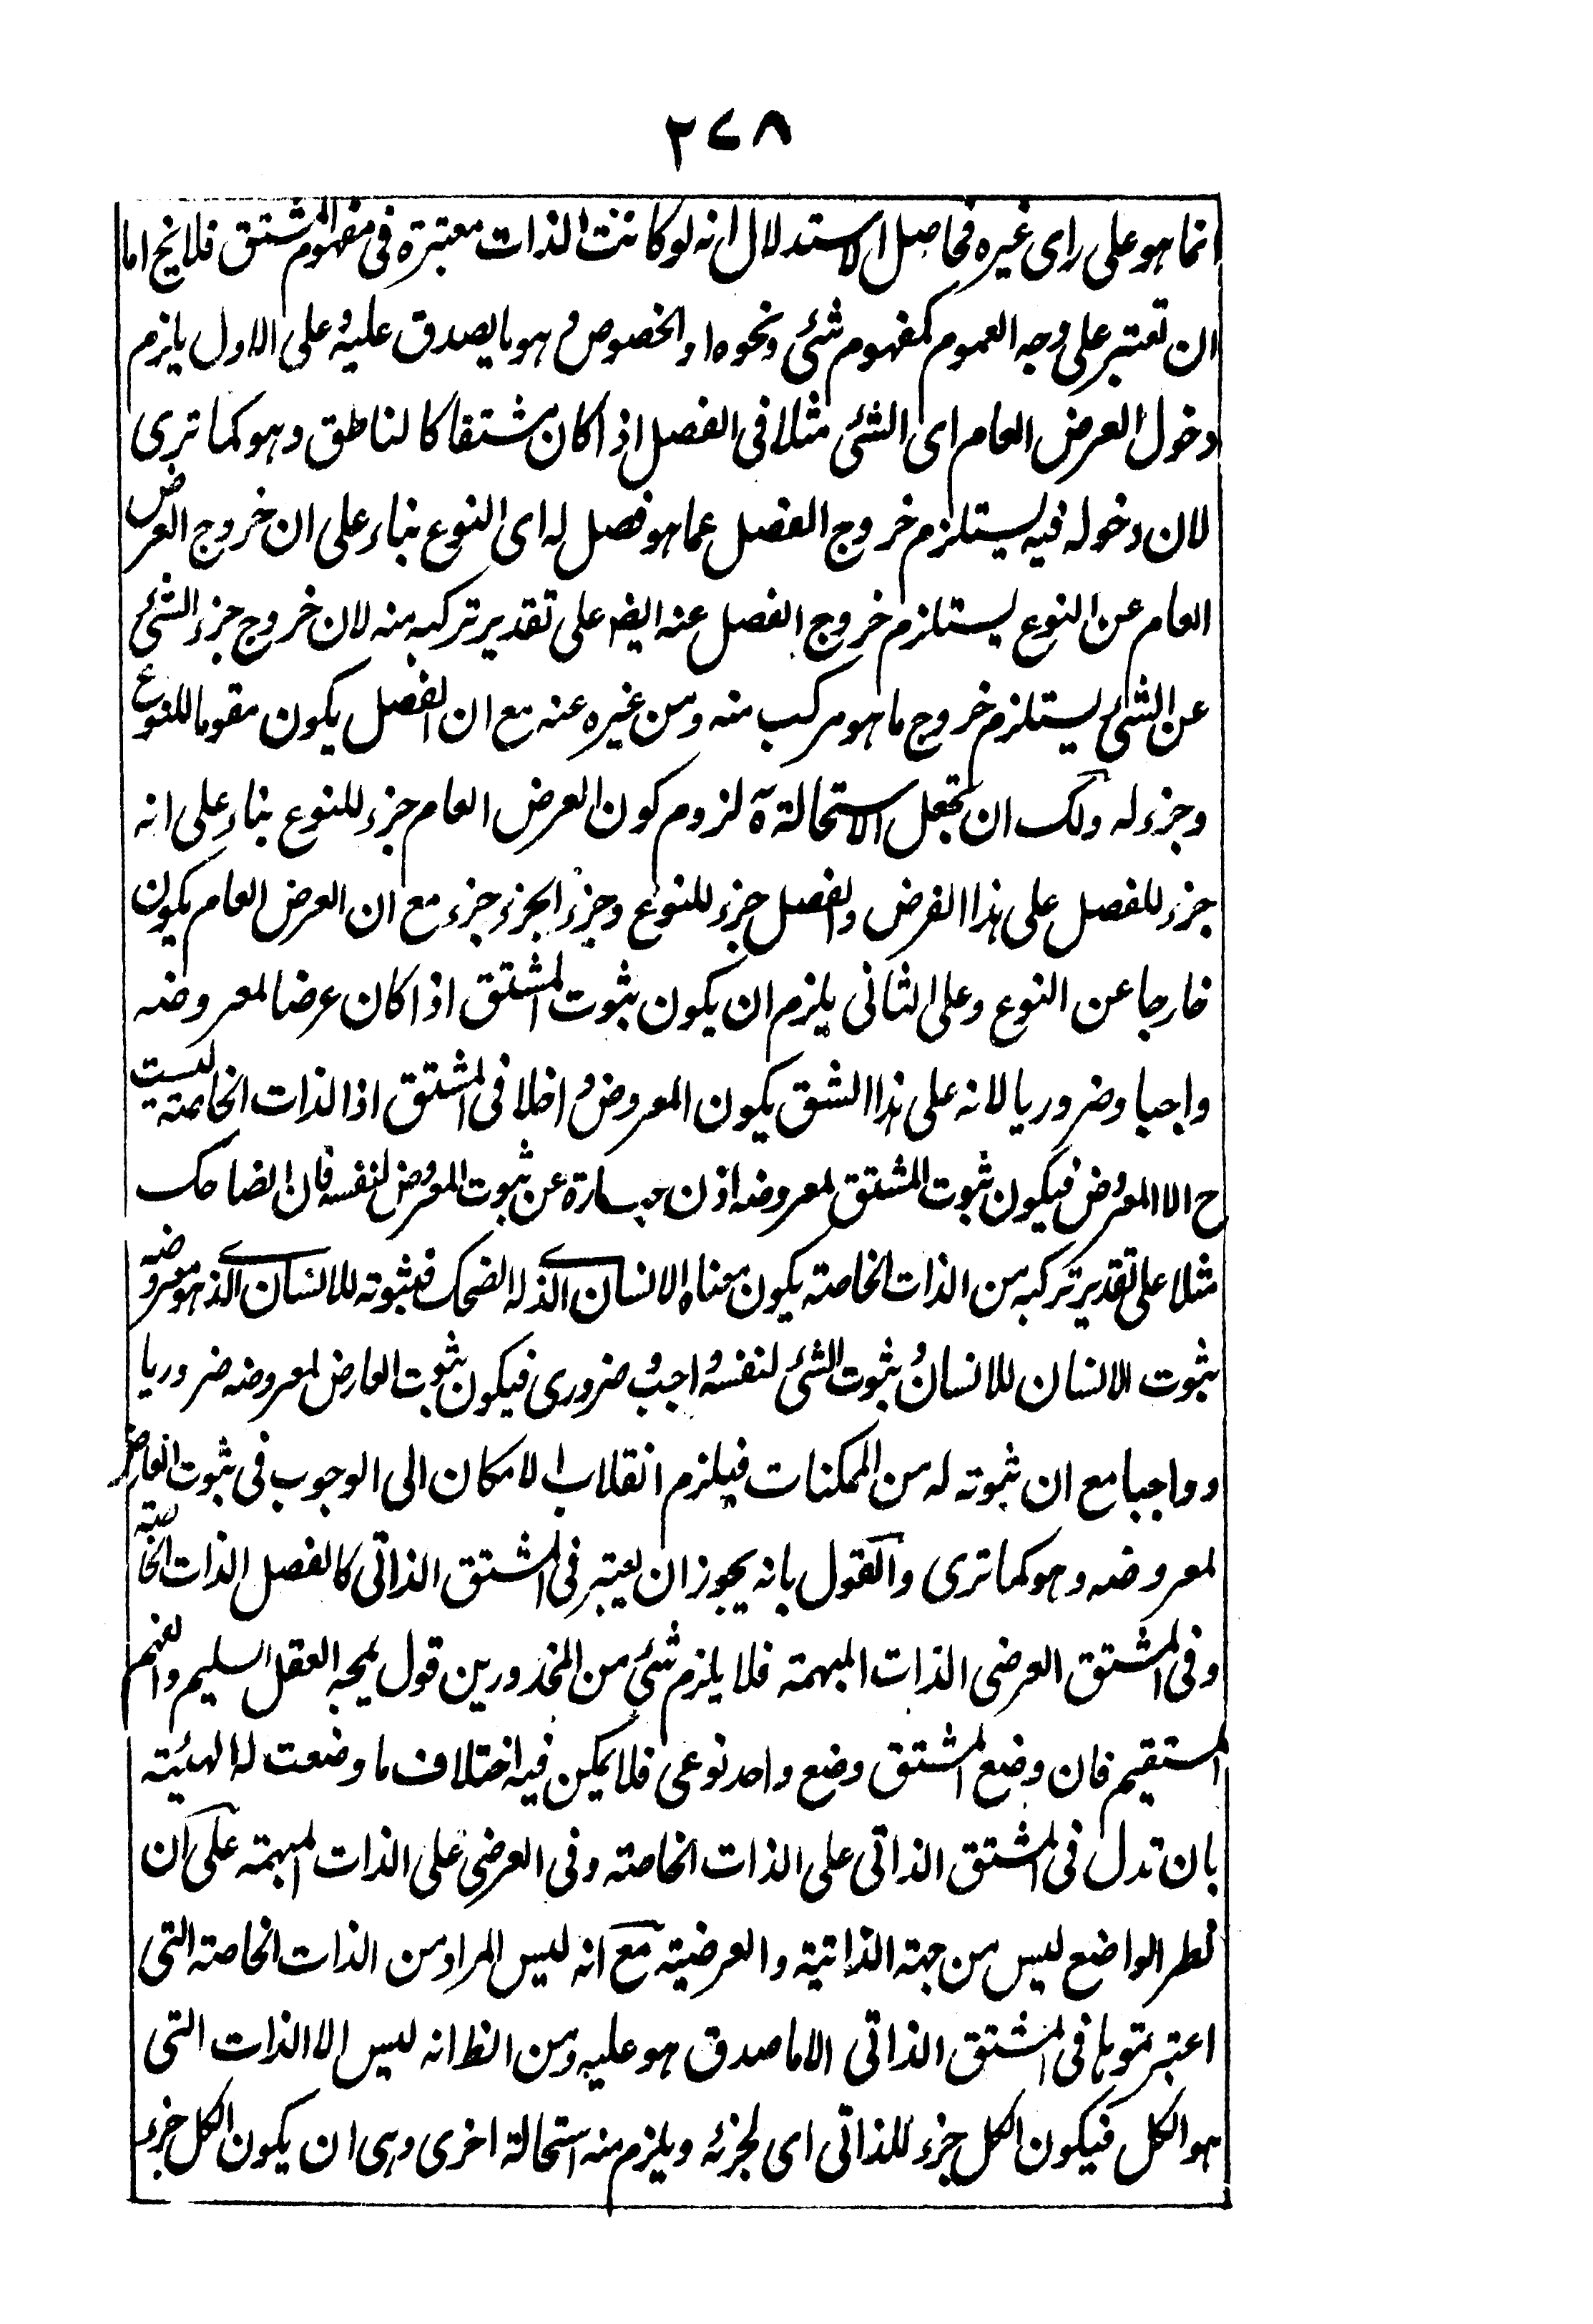 ٢٧٨
انما هو على راى غيره فحاصل الاستدلال انه لو كانت الذات معتبرة فى مفهوم المشتق فلا يخ اما
ان تعتبر على وجه العموم كمفهوم شئ ونحوه او الخصوص وهو ما يصدق عليه وعلى الاول يلزم
دخول العرض العام اى الشئ مثلا فى الفصل اذا كان مشتقا كالناطق وهو كما ترى
لان دخوله فيه يستلزم خروج الفصل عما هو فصل له اى النوع بناء على ان خروج العرض
العام عن النوع يستلزم خروج الفصل عنه ايضا على تقدير تركبه منه لان خروج جزء الشئ
عن الشئ يستلزم خروج ما هو مركب منه ومن غيره عنه مع ان الفصل يكون مقوما للنوع
وجزء له ولك ان تجعل الاستحالة ة لزوم كون العرض العام جزء للنوع بناء على انه
جزء للفصل على هذا الفرض والفصل جزء للنوع وجزء الجزء جزء مع ان العرض العام يكون
خارجا عن النوع وعلى الثانى يلزم ان يكون ثبوت المشتق اذا كان عرضا لمعروضه
واجبا وضروريا لانه على هذا الشق يكون المعروض داخلا فى المشتق اذا الذات الخاصة ليست
ح الا المعروض فيكون ثبوت المشتق لمعروضه اذن عبارة عن ثبوت المعروض لنفسه فان الضاحك
مثلا على تقدير تركبه من الذات الخاصة يكون معناه الانسان الذى له الضحك فثبوته للانسان الذى هو معروضه
ثبوت الانسان للانسان وثبوت الشئ لنفسه واجب وضرورى فيكون ثبوت العارض لمعروضه ضروريا
وواجبا مع ان ثبوته له من الممكنات فيلزم انقلاب الامكان الى الوجوب فى ثبوت العارض
لمعروضه وهو كما ترى والقول بانه يجوز ان يعتبر فى المشتق الذاتى كالفصل الذات الخاصة
وفى المشتق العرضى الذات المبهمة فلا يلزم شئ من المخذورين قول يمجه العقل السليم والفهم
المستقيم فان وضع المشتق وضع واحد نوعى فلا يمكن فيه اختلاف ما وضعت له الهيئة
بان تدل فى المشتق الذاتى على الذات الخاصة وفى العرضى على الذات المبهمة على ان
نظر الواضع ليس من جهة الذاتية والعرضية مع انه ليس المراد من الذات الخاصة التى
اعتبرتموها فى المشتق الذاتى الا ما صدق هو عليه ومن الظ انه ليس الا الذات التى
هو الكل فيكون الكل جزء للذاتى اى لجزئه ويلزم منه استحالة اخرى وهى ان يكون الكل جزء